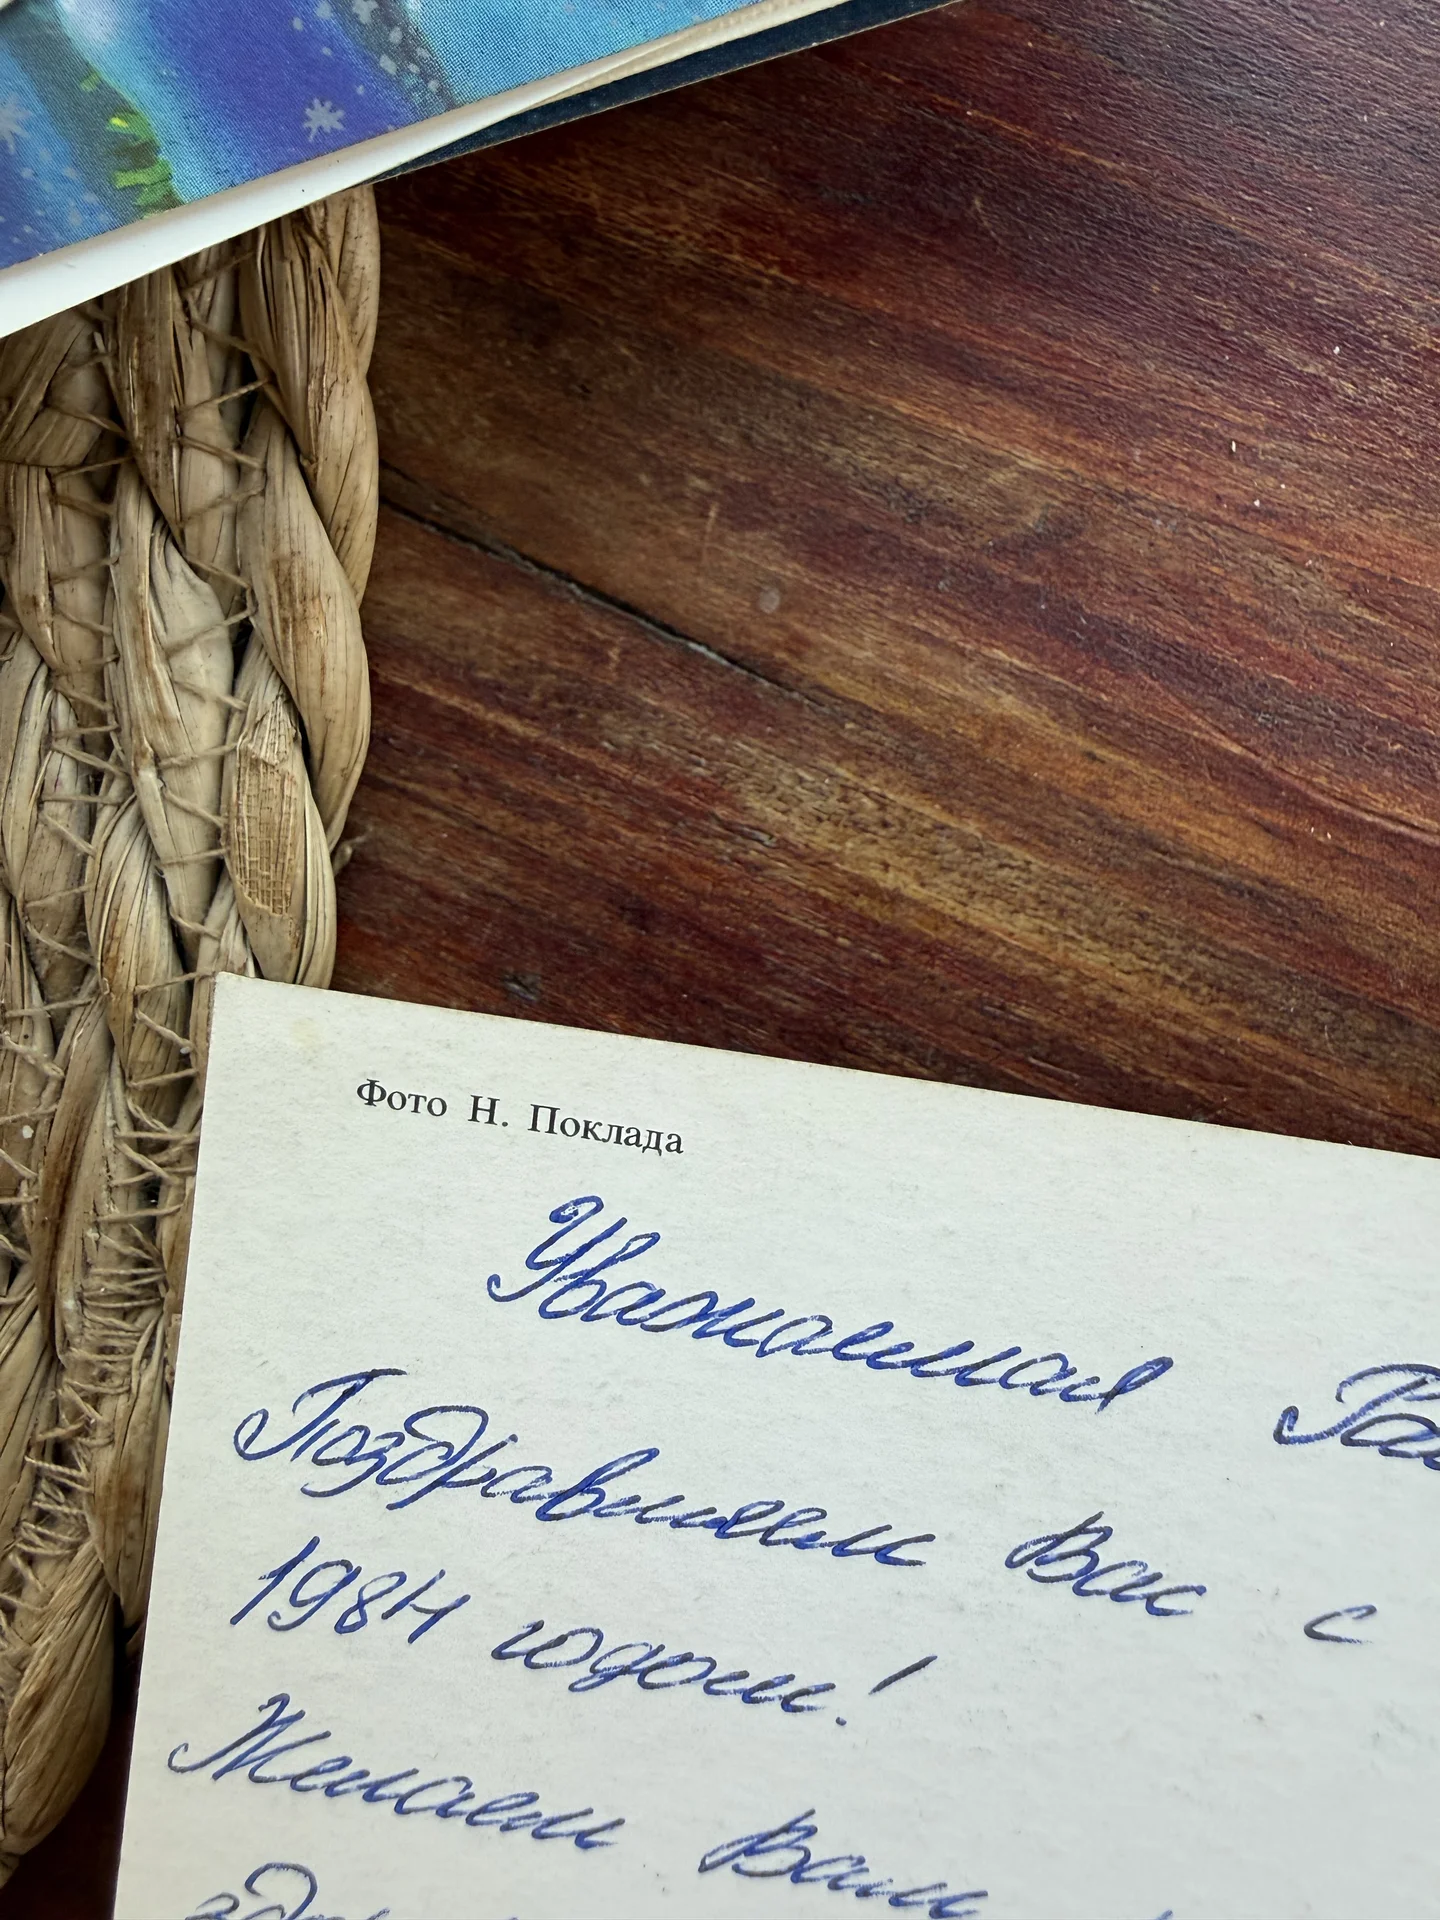 Фото Н. Поклада
Уважаемая
Поздравляем Вас с
1984 годом!
Желаем Вам